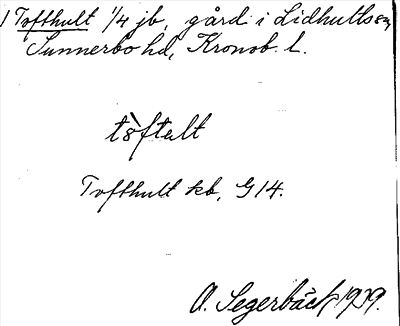 1 Tofthult 1/4 jb, gård i Lidhults sn,
Sunnerbo hd, Kronob. l.
tòftalt
Tofthult kb, G 14.
A. Segerbäck 1929.